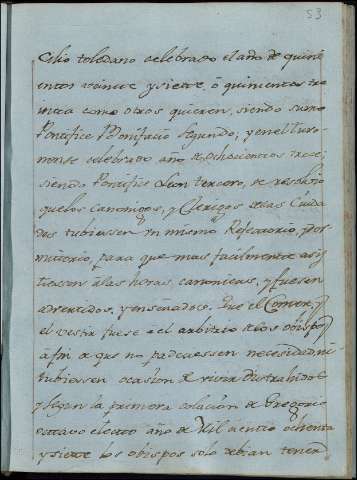 53
Cilio toledano celebrado el año de quini
entos veinte y siete, ô quinientos tre
inta como otros quieren, siendo sumo
Pontifice Bonifacio segundo; y en el turo
nense celebrado año de ochocientos trece
siendo Pontifice Leon tercero, se resolvio
que los canonigos, y Clerigos de las Ciuda
des tubiessen un mismo Refectorio, y Dor
mitorio, para que mas facilmente asis
tiessen â las horas, canonicas, y fuesen
advertidos, y enseñados. Que el Comer, y
el vestir fuese â el arbitrio de los obispos
â fin de que no padeciessen necesidad ni
tubiessen ocasion de vivir distrahidos
y segun la primera colacion de Gregorio
octavo electo año de Mil ciento ochenta
y siete los obispos solo debian tener